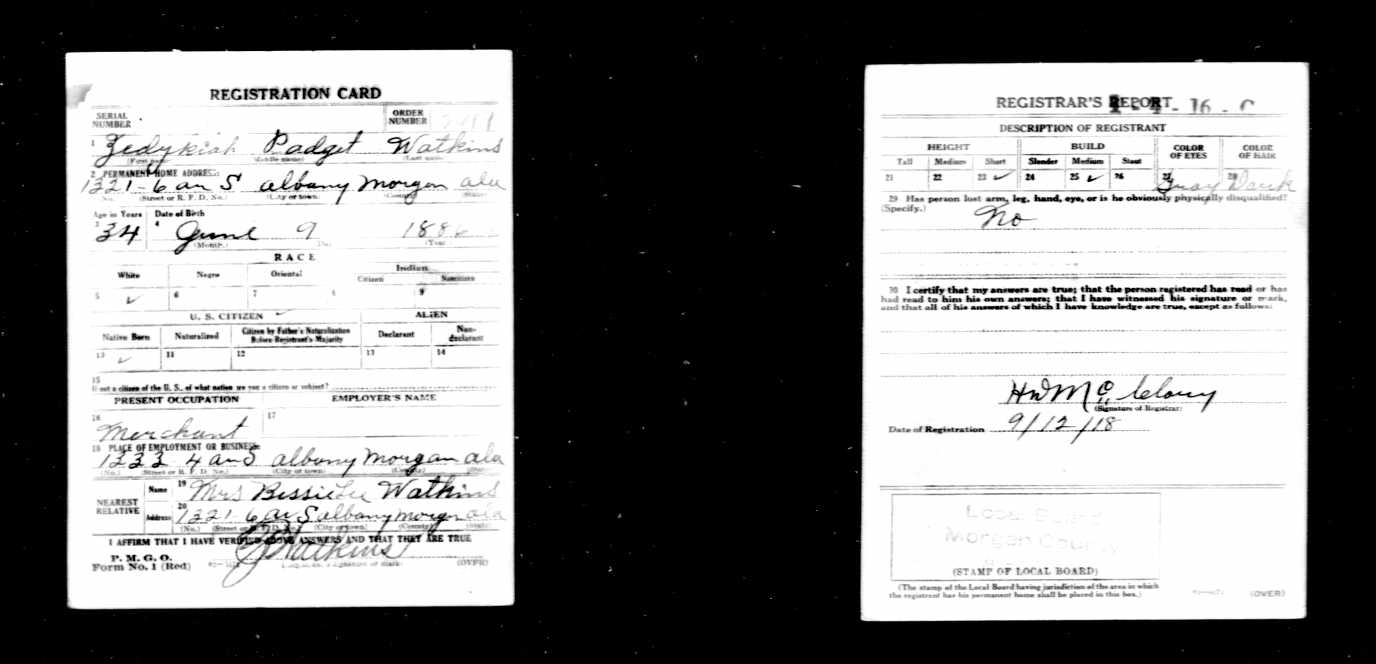 REGISTRATION CARD
SERIAL NUMBER
ORDER NUMBER
1 Zedykiah Padget Watkins
(First name) (Middle name) (Last name)
2 PERMANENT HOME ADDRESS:
1321-6 av S albany Morgan ala
(No.) (Street or R. F. D. No.) (City or town) (County) (State)
Age in Years Date of Birth
3 34 4 June 9 1886
(Month.) (Day.) (Year.)
RACE
White Negro Oriental Indian
Citizen Noncitizen
5 ✓ 6 7 8 9
U. S. CITIZEN ✓ ALIEN
Native Born Naturalized Citizen by Father's Naturalization Before Registrant's Majority Declarant Non-declarant
10 ✓ 11 12 13 14
15
If not a citizen of the U. S., of what nation are you a citizen or subject?
PRESENT OCCUPATION EMPLOYER'S NAME
16 17
Merchant
18 PLACE OF EMPLOYMENT OR BUSINESS:
1233 4 av S albany Morgan ala
(No.) (Street or R. F. D. No.) (City or town) (County) (State)
NEAREST RELATIVE
Name 19 Mrs Bessie Lee Watkins
Address 20 1321 6 av S albany Morgan ala
(No.) (Street or R. F. D. No.) (City or town) (County) (State)
I AFFIRM THAT I HAVE VERIFIED ABOVE ANSWERS AND THAT THEY ARE TRUE
P. M. G. O.
Form No. 1 (Red) Watkins
(Registrant's signature or mark) (OVER)
REGISTRAR'S REPORT 1-4-16-C
DESCRIPTION OF REGISTRANT
HEIGHT BUILD COLOR OF EYES COLOR OF HAIR
Tall Medium Short Slender Medium Stout
21 22 23 ✓ 24 25 ✓ 26 27 Gray 28 Dark
29 Has person lost arm, leg, hand, eye, or is he obviously physically disqualified?
(Specify.) No
30 I certify that my answers are true; that the person registered has read or has
had read to him his own answers; that I have witnessed his signature or mark,
and that all of his answers of which I have knowledge are true, except as follows:
(Signature of Registrar)
Date of Registration 9/12/18
Local Board
Morgan County
(STAMP OF LOCAL BOARD)
(The stamp of the Local Board having jurisdiction of the area in which
the registrant has his permanent home shall be placed in this box.)
(OVER)